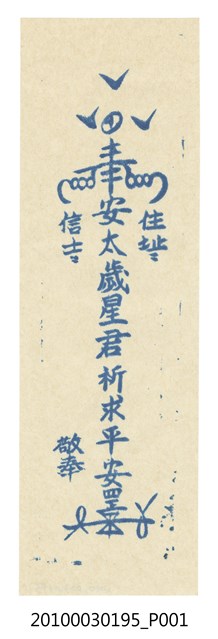 奉
安太歲星君祈求平安罡
住址
信士
敬奉
20100030195_P001